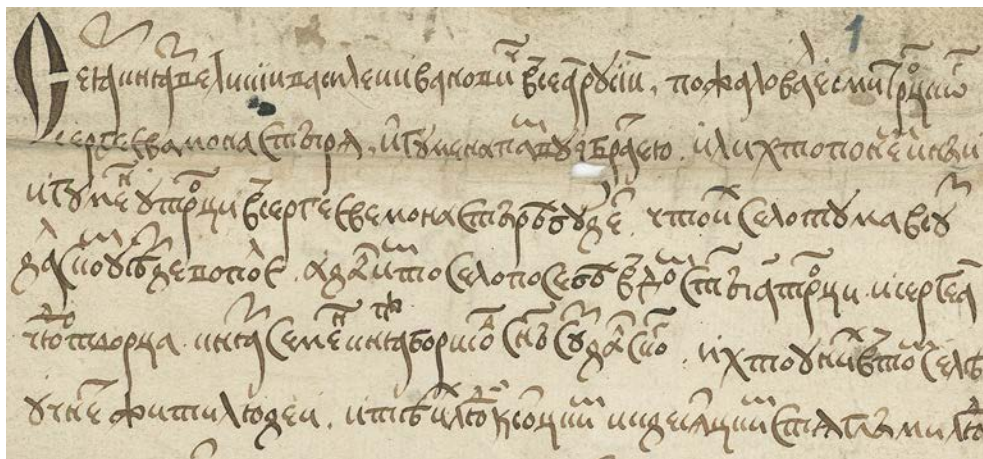 Се ꙗз кнꙗз великіи василеи иванович всеа русіи. пожаловал есми троицког
сергеева монастырꙗ. игумена памву з братею. или хто по нем иныи
игумен у троци в сергееве монастырѣ будет. что их село тума в су
дал ском уѣзде в опол е. а дал им то село по себѣ в дом стыа троци и сергеа
чюдотворца. кнꙗз семен кнꙗж борисов сн суздалског. и хто у них в том селѣ
учнет жити людеи. и тѣх их людеи